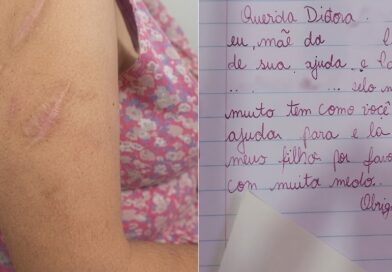 Querida Ditora
eu, mãe da
de sua ajuda e
selo
muito tem como você
ajudar para e la
meus filho por favo
com muita medo.
Obrig